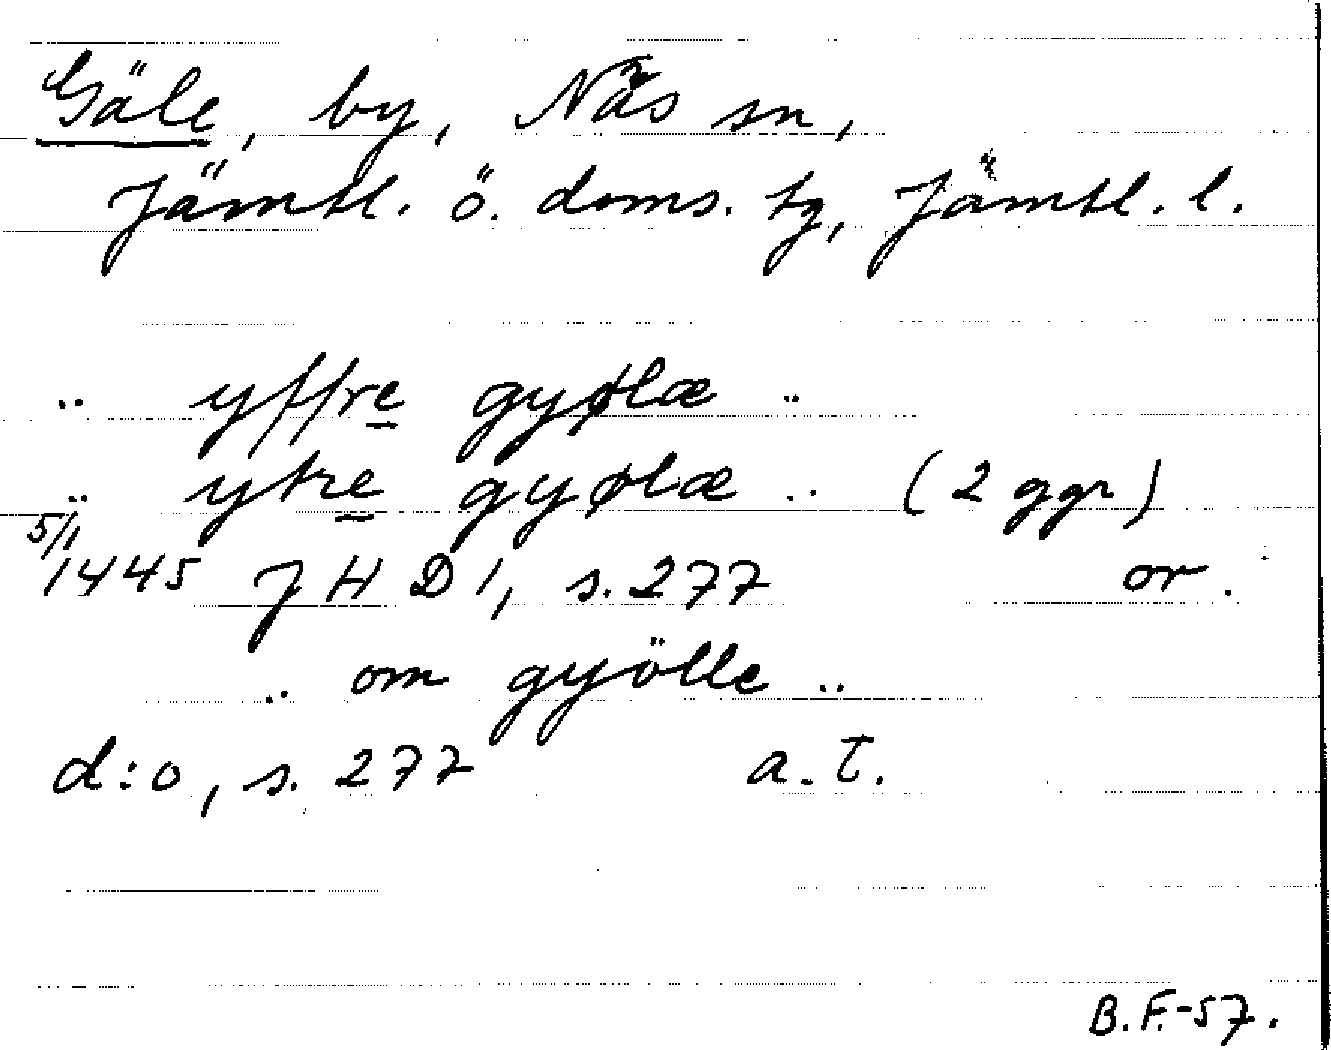 Gäle, by, Näs sn,
Jämtl. ö. doms. tg, Jämtl. l.
.. yffre gyølæ ..
.. ytre gyølæ .. (2 ggr)
5/1 1445 JHD 1, s. 277 or.
.. om gyölle ..
d:o, s. 277 a. t.
B.F.-57.